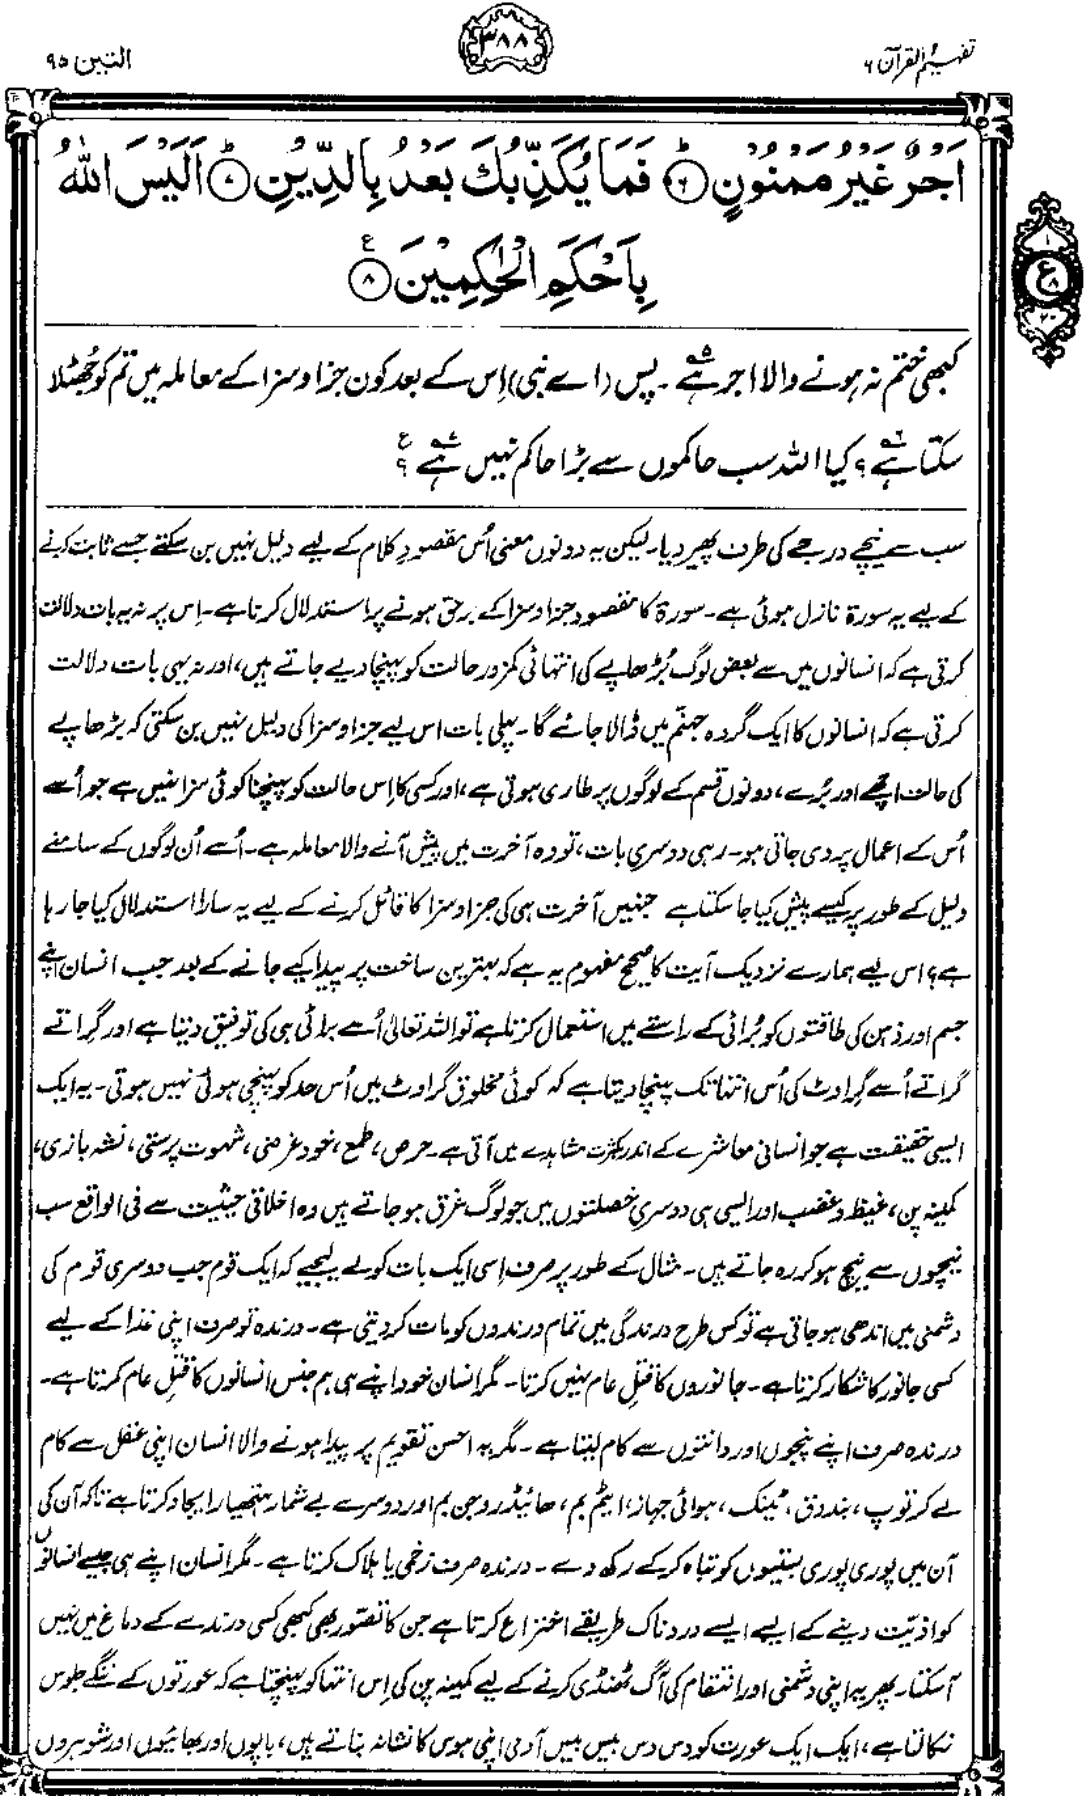 تفہیم القرآن ۶
۳۸۸
التین ۹۵
اَجْرٌ غَيْرُ مَمْنُوْنٍ ۶ فَمَا يُكَذِّبُكَ بَعْدُ بِالدِّيْنِ ۷ اَلَيْسَ اللّٰهُ
بِاَحْكَمِ الْحٰكِمِيْنَ ۸
کبھی ختم نہ ہونے والا اجر ہے۵؎۔ پس (اے نبی) اِس کے بعد کون جزا و سزا کے معاملہ میں تم کو جُھٹلا
سکتا ہے۶؎؟ کیا اللہ سب حاکموں سے بڑا حاکم نہیں ہے۷؎؟ ع
سب سے نیچے درجے کی طرف پھیر دیا۔ لیکن یہ دونوں معنی اُس مقصودِ کلام کے لیے دلیل نہیں بن سکتے جسے ثابت کرنے
کے لیے یہ سورۃ نازل ہوئی ہے۔ سورۃ کا مقصود جزا و سزا کے برحق ہونے پر استدلال کرنا ہے۔ اِس پر نہ یہ بات دلالت
کرتی ہے کہ انسانوں میں سے بعض لوگ بُڑھاپے کی انتہائی کمزور حالت کو پہنچا دیے جاتے ہیں، اور نہ یہی بات دلالت
کرتی ہے کہ انسانوں کا ایک گروہ جہنّم میں ڈالا جائے گا۔ پہلی بات اس لیے جزا و سزا کی دلیل نہیں بن سکتی کہ بڑھاپے
کی حالت اچھے اور بُرے، دونوں قسم کے لوگوں پر طاری ہوتی ہے، اور کسی کا اِس حالت کو پہنچنا کوئی سزا نہیں ہے جو اُسے
اُس کے اعمال پر دی جاتی ہو۔ رہی دوسری بات، تو وہ آخرت میں پیش آنے والا معاملہ ہے۔ اُسے اُن لوگوں کے سامنے
دلیل کے طور پر کیسے پیش کیا جا سکتا ہے جنہیں آخرت ہی کی جزا و سزا کا قائل کرنے کے لیے یہ سارا استدلال کیا جا رہا
ہے؟ اس لیے ہمارے نزدیک آیت کا صحیح مفہوم یہ ہے کہ بہترین ساخت پر پیدا کیے جانے کے بعد جب انسان اپنے
جسم اور ذہن کی طاقتوں کو بُرائی کے راستے میں استعمال کرتا ہے تو اللہ تعالیٰ اُسے برائی ہی کی توفیق دیتا ہے اور گراتے
گراتے اُسے گراوٹ کی اُس انتہا تک پہنچا دیتا ہے کہ کوئی مخلوق گراوٹ میں اُس حد کو پہنچی ہوئی نہیں ہوتی۔ یہ ایک
ایسی حقیقت ہے جو انسانی معاشرے کے اندر بکثرت مشاہدے میں آتی ہے۔ حرص، طمع، خود غرضی، شہوت پرستی، نشہ بازی،
کمینہ پن، غیظ و غضب اور ایسی ہی دوسری خصلتوں میں جو لوگ غرق ہو جاتے ہیں وہ اخلاقی حیثیت سے فی الواقع سب
نیچوں سے نیچ ہو کر رہ جاتے ہیں۔ مثال کے طور پر صرف اِسی ایک بات کو لے لیجیے کہ ایک قوم جب دوسری قوم کی
دشمنی میں اندھی ہو جاتی ہے تو کس طرح درندگی میں تمام درندوں کو مات کر دیتی ہے۔ درندہ تو صرف اپنی غذا کے لیے
کسی جانور کا شکار کرتا ہے۔ جانوروں کا قتلِ عام نہیں کرتا۔ مگر انسان خود اپنے ہی ہم جنس انسانوں کا قتلِ عام کرتا ہے۔
درندہ صرف اپنے پنجوں اور دانتوں سے کام لیتا ہے۔ مگر یہ احسن تقویم پر پیدا ہونے والا انسان اپنی عقل سے کام
لے کر توپ، بندوق، ٹینک، ہوائی جہاز، ایٹم بم، ھائیڈروجن بم اور دوسرے بے شمار ہتھیار ایجاد کرتا ہے تاکہ آن کی
آن میں پوری پوری بستیوں کو تباہ کر کے رکھ دے۔ درندہ صرف زخمی یا ہلاک کرتا ہے۔ مگر انسان اپنے ہی جیسے انسانوں
کو اذیّت دینے کے ایسے ایسے دردناک طریقے اختراع کرتا ہے جن کا تصوّر بھی کبھی کسی درندے کے دماغ میں نہیں
آ سکتا۔ پھر یہ اپنی دشمنی اور انتقام کی آگ ٹھنڈی کرنے کے لیے کمینہ پن کی اِس انتہا کو پہنچتا ہے کہ عورتوں کے ننگے جلوس
نکالتا ہے، ایک ایک عورت کو دس دس بیس بیس آدمی اپنی ہوس کا نشانہ بناتے ہیں، باپوں اور بھائیوں اور شوہروں